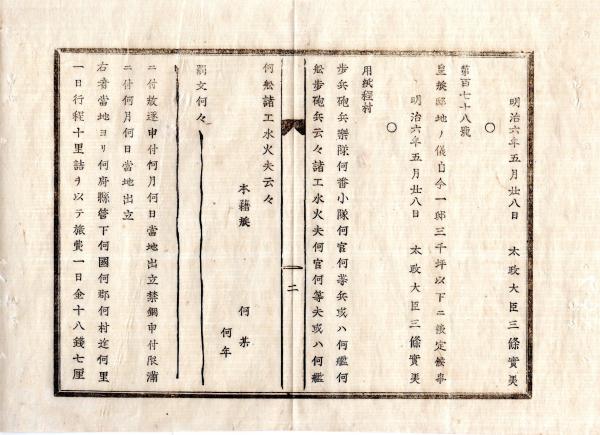 明治六年五月廿八日　太政大臣三條實美
○
第百七十八號
皇族邸地ノ儀自今一邸三千坪以下ニ被定候事
明治六年五月廿八日　太政大臣三條實美
○
用紙程村
步兵砲兵樂隊何番小隊何官何等兵或ハ何艦何
舩步砲兵云々諸工水火夫何官何等夫或ハ何艦
二
何舩諸工水火夫云々
本籍族　何某
何年
罰文何々
ニ付放逐申付何月何日當地出立禁錮申付限滿
ニ付何月何日當地出立
右者當地ヨリ何府縣管下何國何郡何村迄何里
一日行程十里詰ヲ以テ旅費一日金十八錢七厘